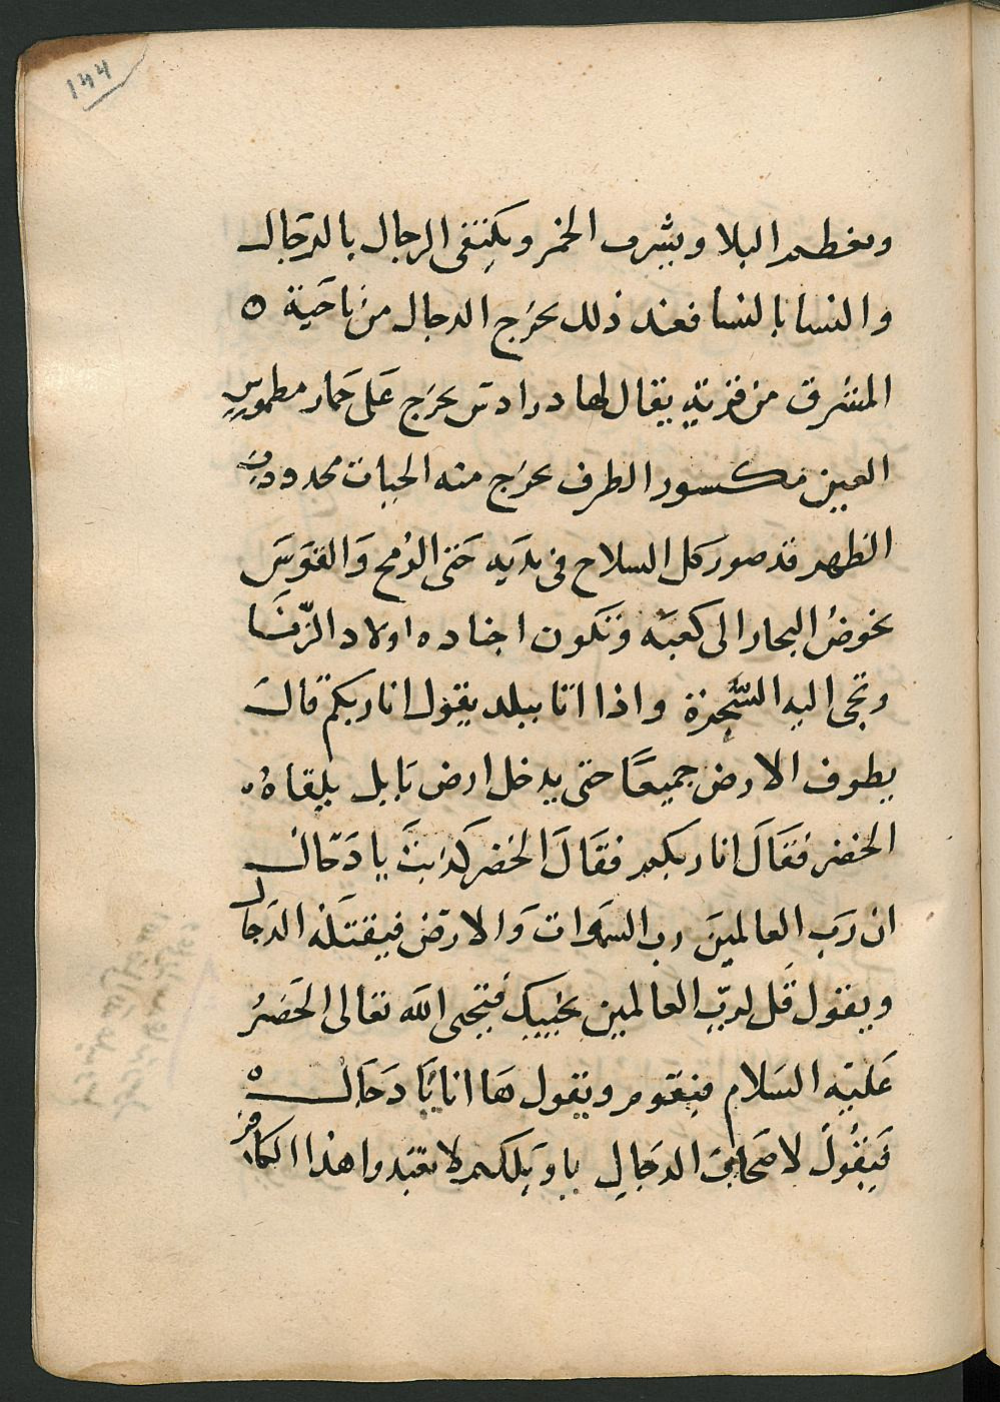 ١٤٤
ويعظم البلا ويشرب الخمر ويكتفى الرجال بالرجال
والنسا بالنسا فعند ذلك يخرج الدجال من ناحية ٥
المشرق من قرية يقال لها درادس يخرج على حمار مطموس
العين مكسور الطرف يخرج منه الحيات محدودب
الظهر قد صور كل السلاح فى يديه حتى الرمح والقوس
يخوض البحار الى كعبه وتكون اجناده اولاد الزنا
وتجى اليه السحرة واذا اتا ببلد يقول انا ربكم قال
يطوف الارض جميعا حتى يدخل ارض بابل يلقاه
الخضر فقال انا ربكم فقال الخضر كذبت يا دجال
ان رب العالمين رب السموات والارض فيقتله الدجال
ويقول قل لرب العالمين يحييك فيحيى الله تعالى الخضر
عليه السلام فيقوم ويقول ها انا يا دجال ٥
فيقول لاصحاب الدجال يا ويلكم لا تعبدوا هذا الكافر